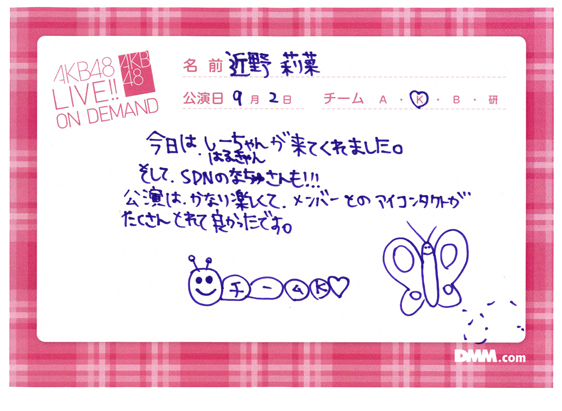 AKB48
LIVE!!
ON DEMAND
AKB
48
名前 近野 莉菜
公演日 9月2日 チーム A・K・B・研
今日は、しーちゃんが来てくれました。
はるきゃん
そして、SDNのなちゅさんも!!!
公演は、かなり楽しくて、メンバーとのアイコンタクトが
たくさんとれて良かったです。
チームK
DMM.com